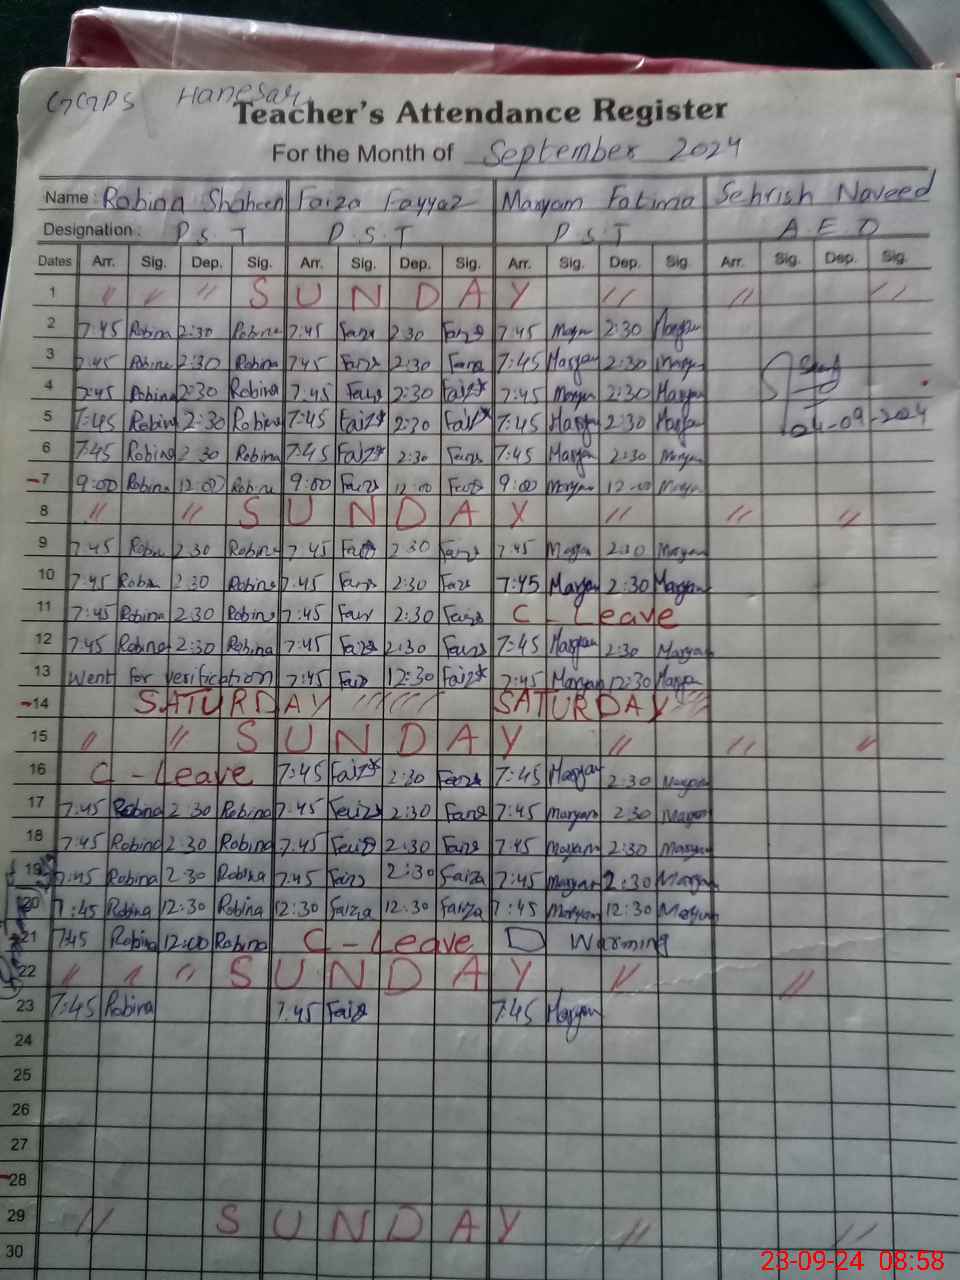 GGPS Hanesar
Teacher's Attendance Register
For the Month of September 2024
Name: Robina Shaheen Faiza Fayyaz Maryam Fatima Sehrish Naveed
Designation: P.S.T P.S.T P.S.T A.E.O
Dates Arr. Sig. Dep. Sig. Arr. Sig. Dep. Sig. Arr. Sig. Dep. Sig. Arr. Sig. Dep. Sig.
1 // // // SUNDAY // // //
2 7:45 Robina 2:30 Robina 7:45 Faiza 2:30 Faiza 7:45 Maryam 2:30 Maryam
3 7:45 Robina 2:30 Robina 7:45 Faiza 2:30 Faiza 7:45 Maryam 2:30 Maryam
4 7:45 Robina 2:30 Robina 7:45 Faiza 2:30 Faiza 7:45 Maryam 2:30 Maryam
5 7:45 Robina 2:30 Robina 7:45 Faiza 2:30 Faiza 7:45 Maryam 2:30 Maryam 04-09-2024
6 7:45 Robina 2:30 Robina 7:45 Faiza 2:30 Faiza 7:45 Maryam 2:30 Maryam
7 9:00 Robina 12:00 Robina 9:00 Faiza 12:00 Faiza 9:00 Maryam 12:00 Maryam
8 // // SUNDAY // // //
9 7:45 Robina 2:30 Robina 7:45 Faiza 2:30 Faiza 7:45 Maryam 2:30 Maryam
10 7:45 Robina 2:30 Robina 7:45 Faiza 2:30 Faiza 7:45 Maryam 2:30 Maryam
11 7:45 Robina 2:30 Robina 7:45 Faiza 2:30 Faiza C - Leave
12 7:45 Robina 2:30 Robina 7:45 Faiza 2:30 Faiza 7:45 Maryam 2:30 Maryam
13 went for verification 7:45 Faiza 12:30 Faiza 7:45 Maryam 12:30 Maryam
14 SATURDAY ////// SATURDAY
15 // // SUNDAY // // //
16 C - Leave 7:45 Faiza 2:30 Faiza 7:45 Maryam 2:30 Maryam
17 7:45 Robina 2:30 Robina 7:45 Faiza 2:30 Faiza 7:45 Maryam 2:30 Maryam
18 7:45 Robina 2:30 Robina 7:45 Faiza 2:30 Faiza 7:45 Maryam 2:30 Maryam
19 7:45 Robina 2:30 Robina 7:45 Faiza 2:30 Faiza 7:45 Maryam 2:30 Maryam
20 7:45 Robina 12:30 Robina 12:30 Faiza 12:30 Faiza 7:45 Maryam 12:30 Maryam
21 7:45 Robina 12:00 Robina C - Leave D Warming
22 // // // SUNDAY // //
23 7:45 Robina 7:45 Faiza 7:45 Maryam
24
25
26
27
28
29 // SUNDAY // //
30
23-09-24 08:58